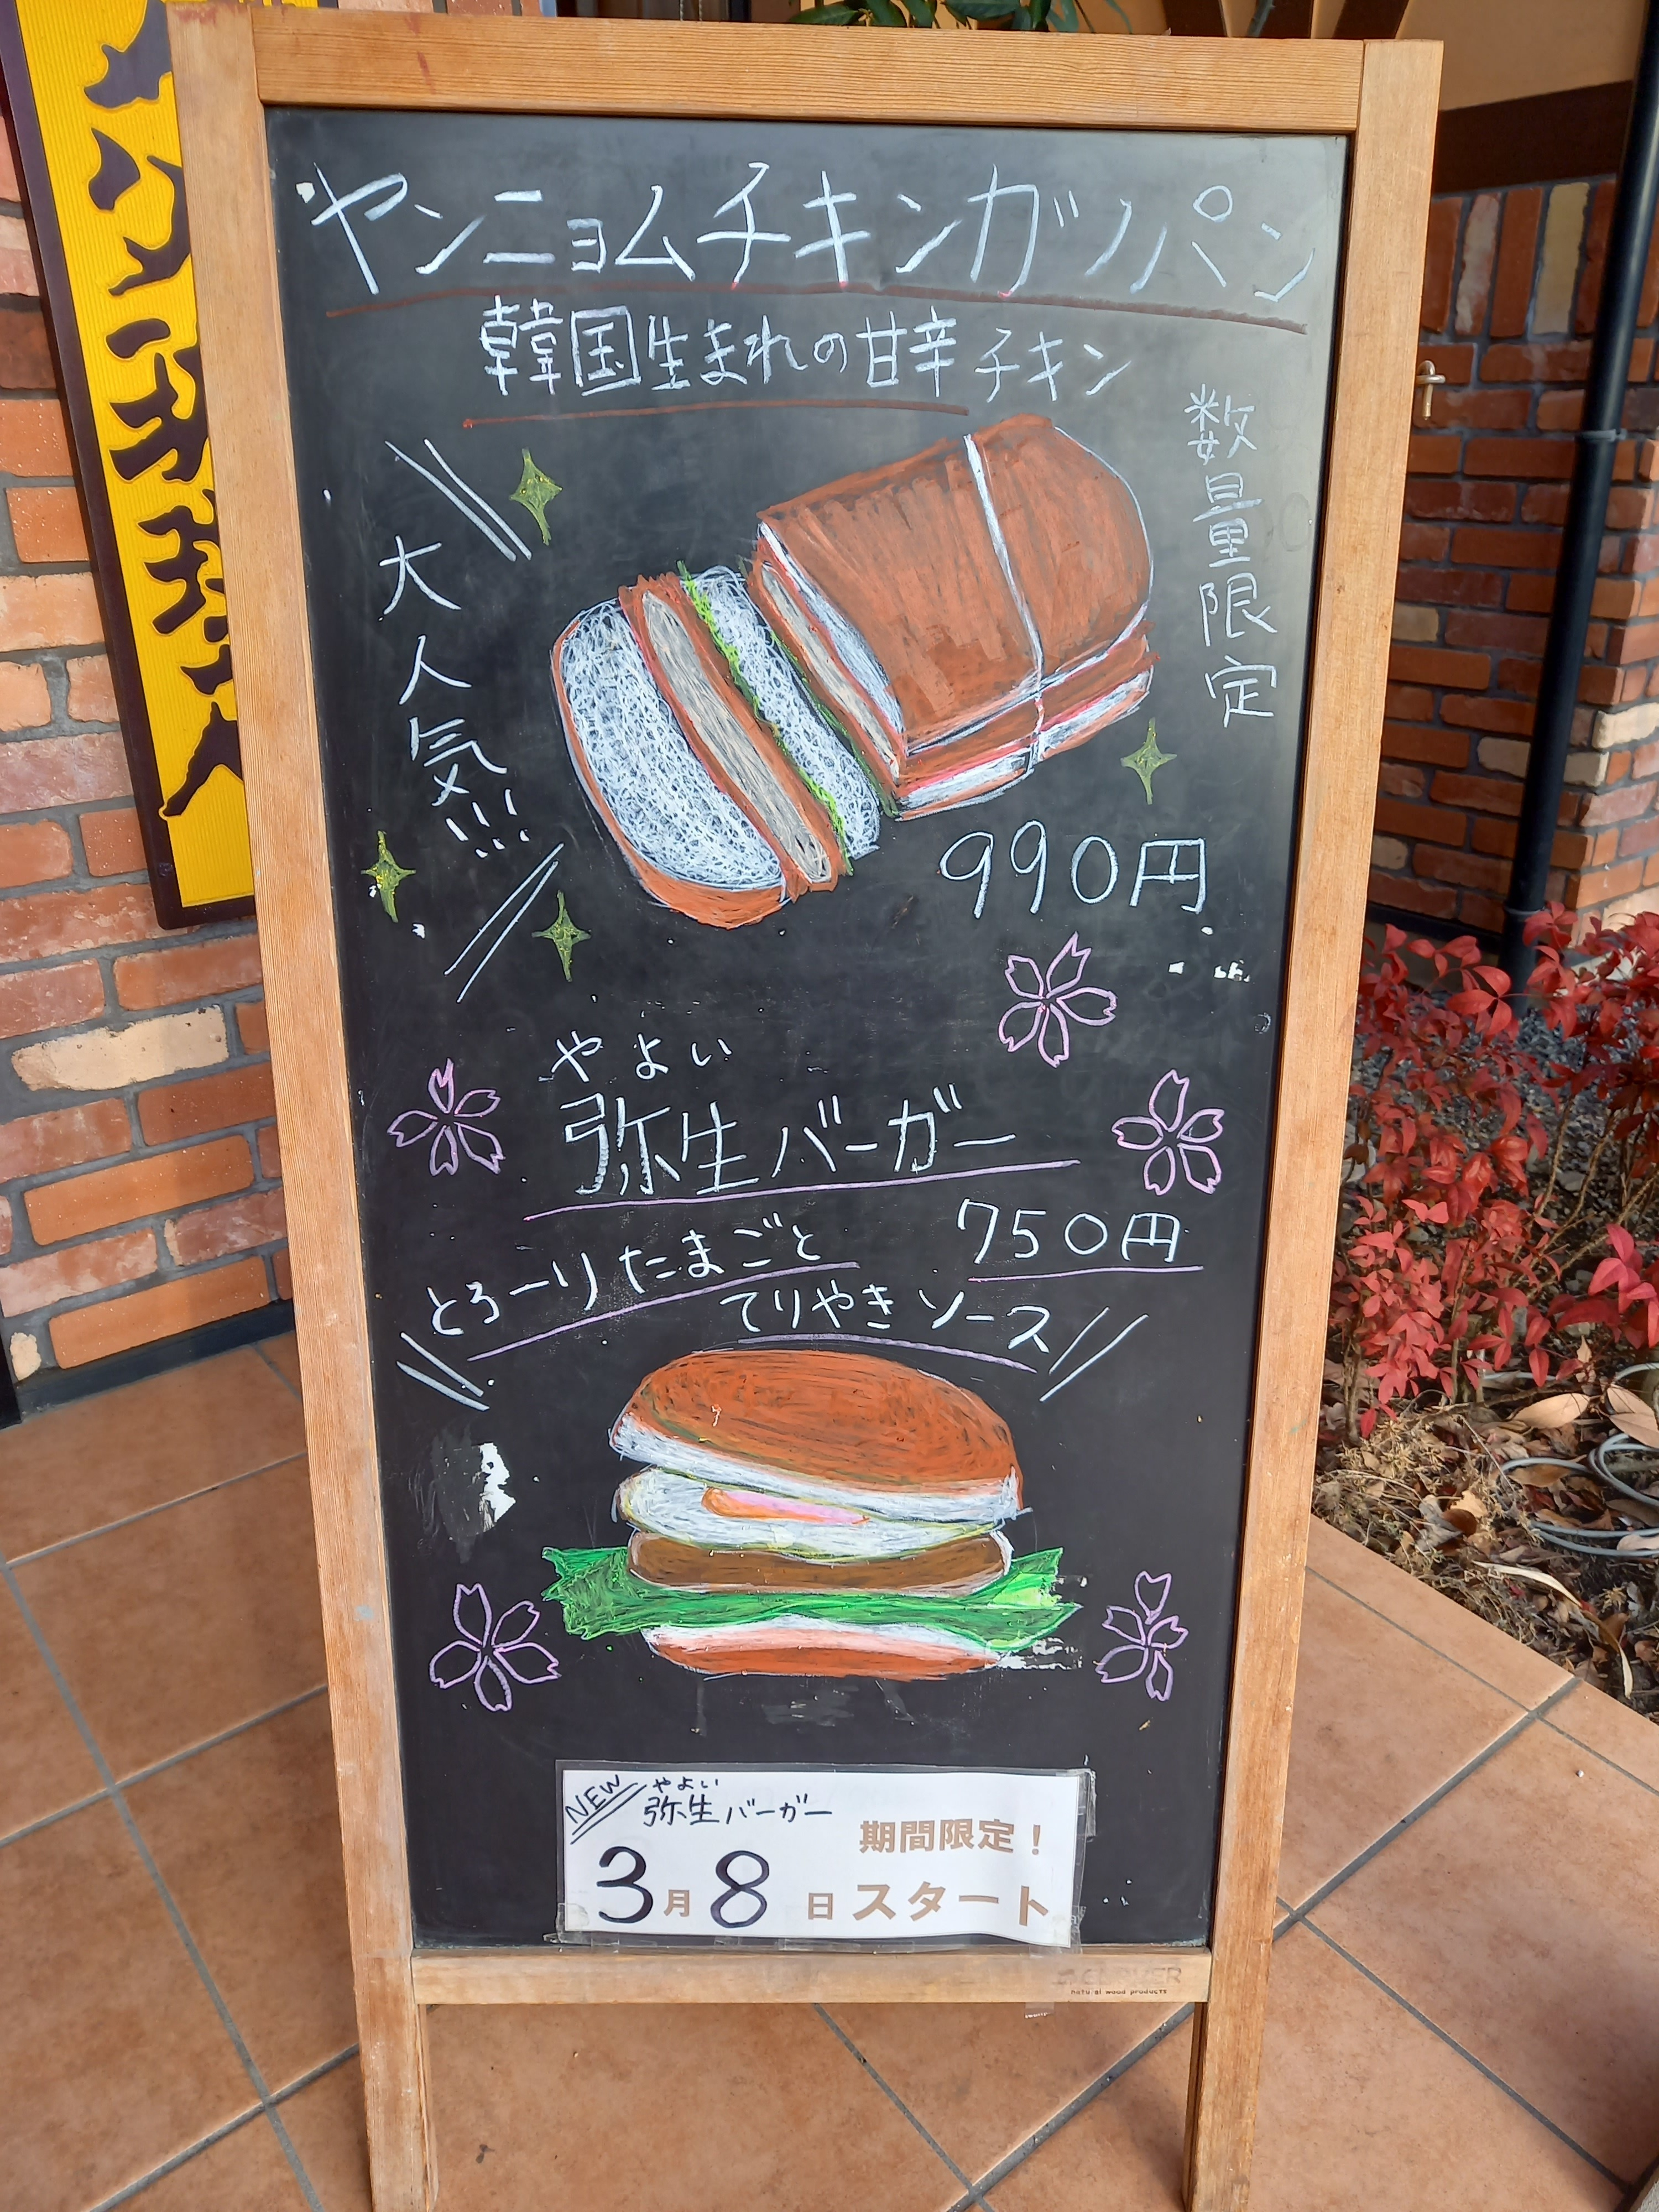 ヤンニョムチキンカツパン
韓国生まれの甘辛チキン
数量限定
大人気!!!
990円
やよい
弥生バーガー
750円
とろーりたまごと
てりやきソース
NEW
やよい
弥生バーガー
期間限定!
3月8日スタート
natural wood products